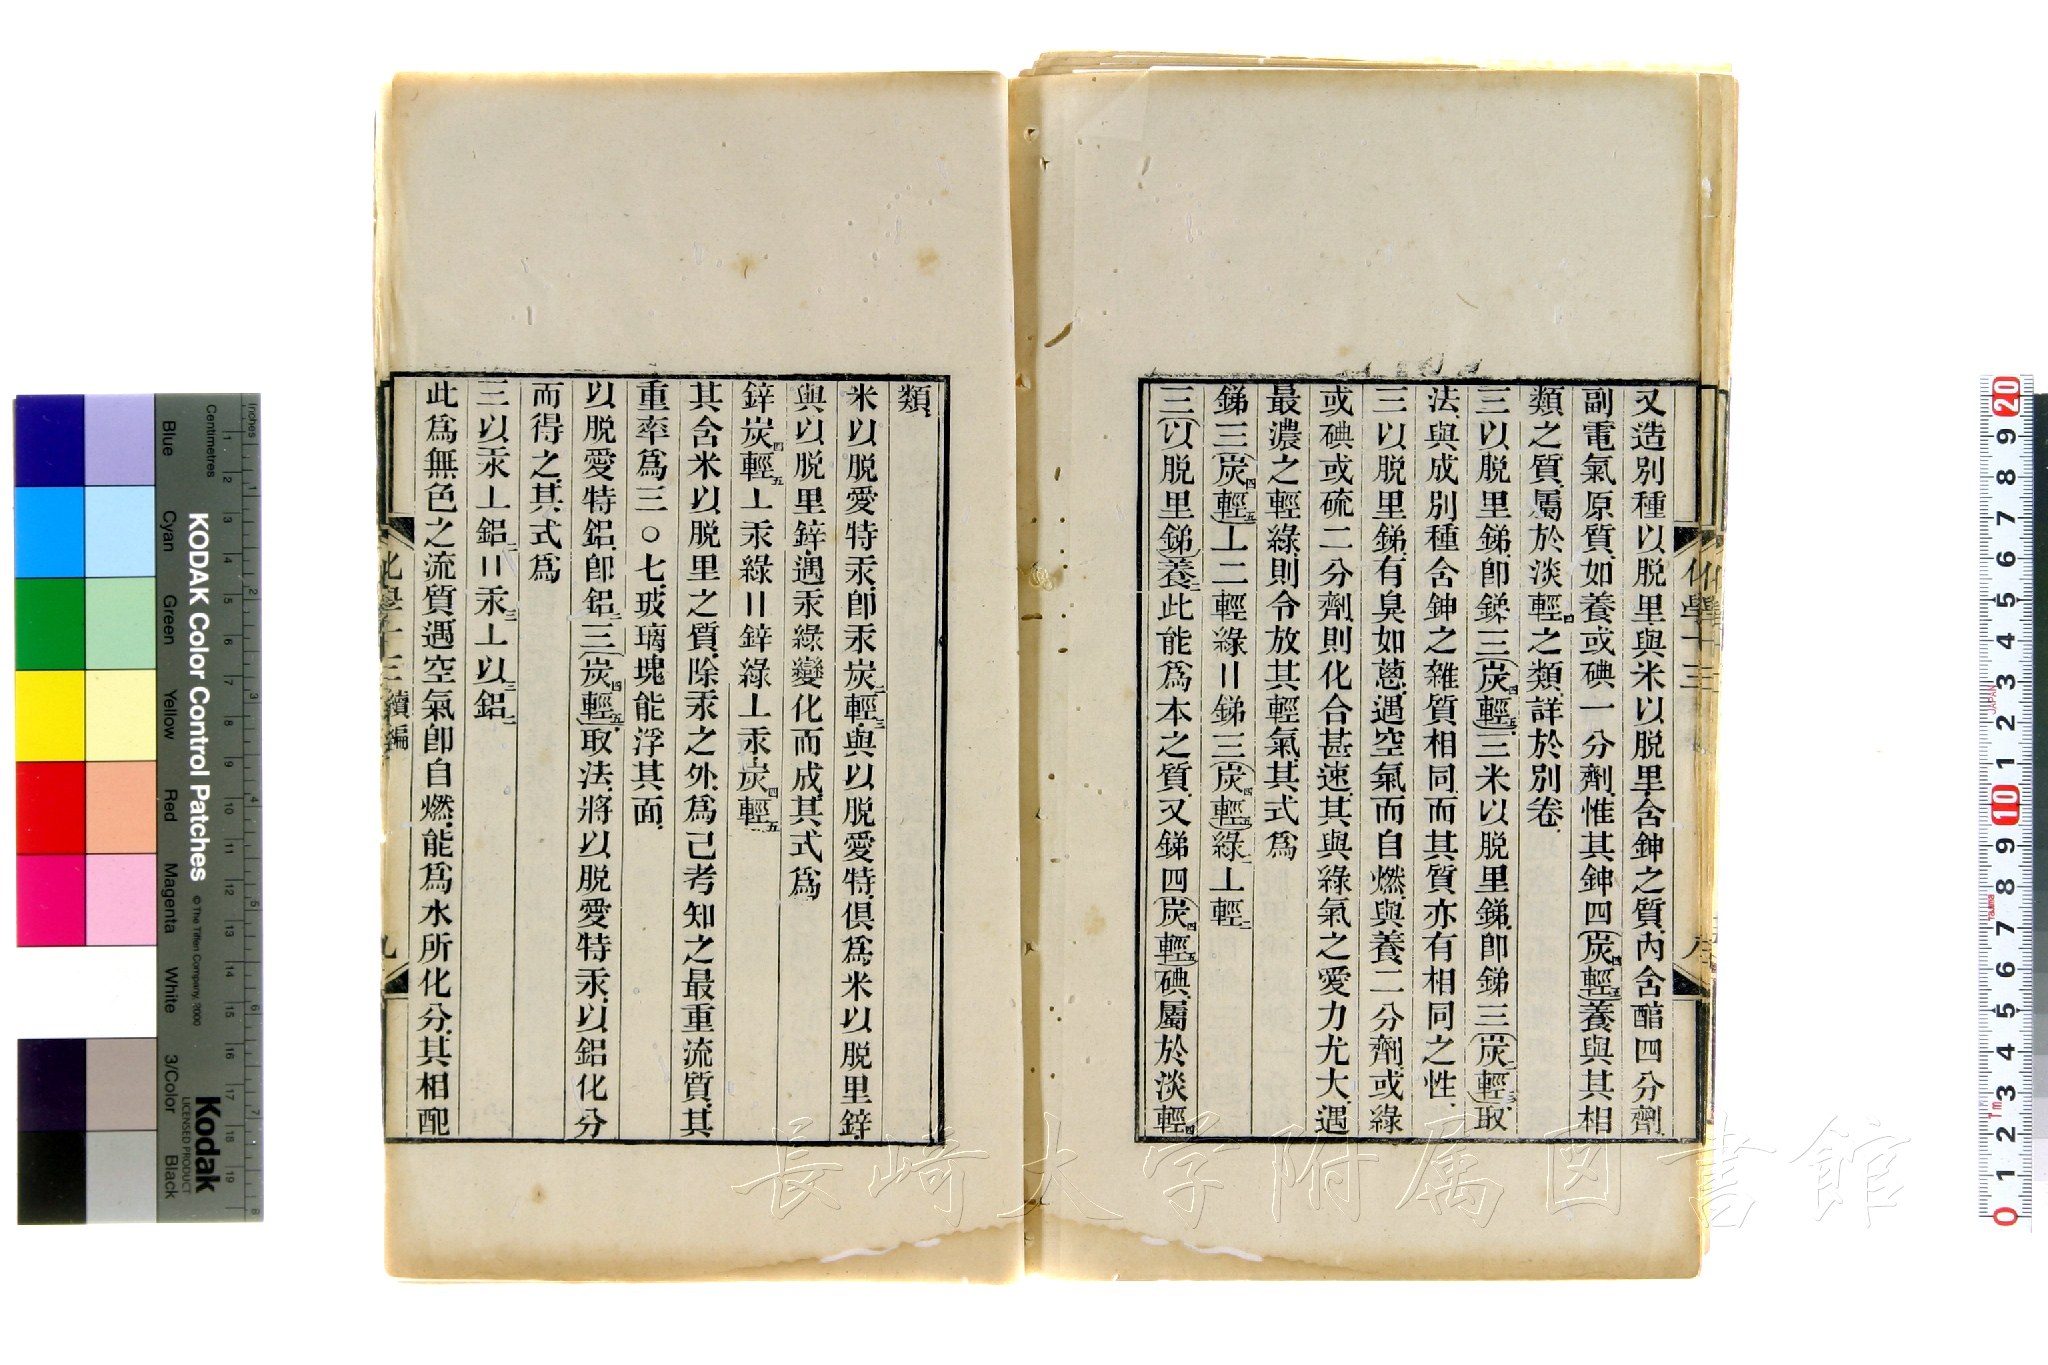 又造別種以脱里與米以脱里含鉮之質內含酯四分劑
副電氣原質如養或碘一分劑惟其鉮四(炭四輕五)養與其相
類之質屬於淡輕四之類詳於別卷
三以脱里銻卽銻三(炭四輕五)三米以脱里銻卽銻三(炭二輕三)取
法與成別種含鉮之雜質相同而其質亦有相同之性
三以脱里銻有臭如蔥遇空氣而自燃與養二分劑或綠
或碘或硫二分劑則化合甚速其與綠氣之愛力尤大遇
最濃之輕綠則令放其輕氣其式爲
銻三(炭四輕五)⊥二輕綠〢銻三(炭四輕五)綠二⊥輕二
三(以脱里銻)養二此能爲本之質又銻四(炭四輕五)碘屬於淡輕四
化學十三
類
米以脱愛特汞卽汞炭二輕三與以脱愛特俱爲米以脱里鋅
與以脱里鋅遇汞綠變化而成其式爲
鋅炭四輕五⊥汞綠〢鋅綠⊥汞炭四輕五
其含米以脱里之質除汞之外爲己考知之最重流質其
重率爲三〇七玻璃塊能浮其面
以脱愛特鋁卽鋁二三(炭四輕五)取法將以脱愛特汞以鋁化分
而得之其式爲
三以汞⊥鋁二〢汞三⊥以三鋁二
此爲無色之流質遇空氣卽自燃能爲水所化分其相配
化學十三續編
九
長崎大学附属図書館
KODAK Color Control Patches
© The Tiffen Company, 2000
Kodak
LICENSED PRODUCT
Centimetres
Inches
Blue
Cyan
Green
Yellow
Red
Magenta
White
3/Color
Black
JAPAN
Tajima
1m